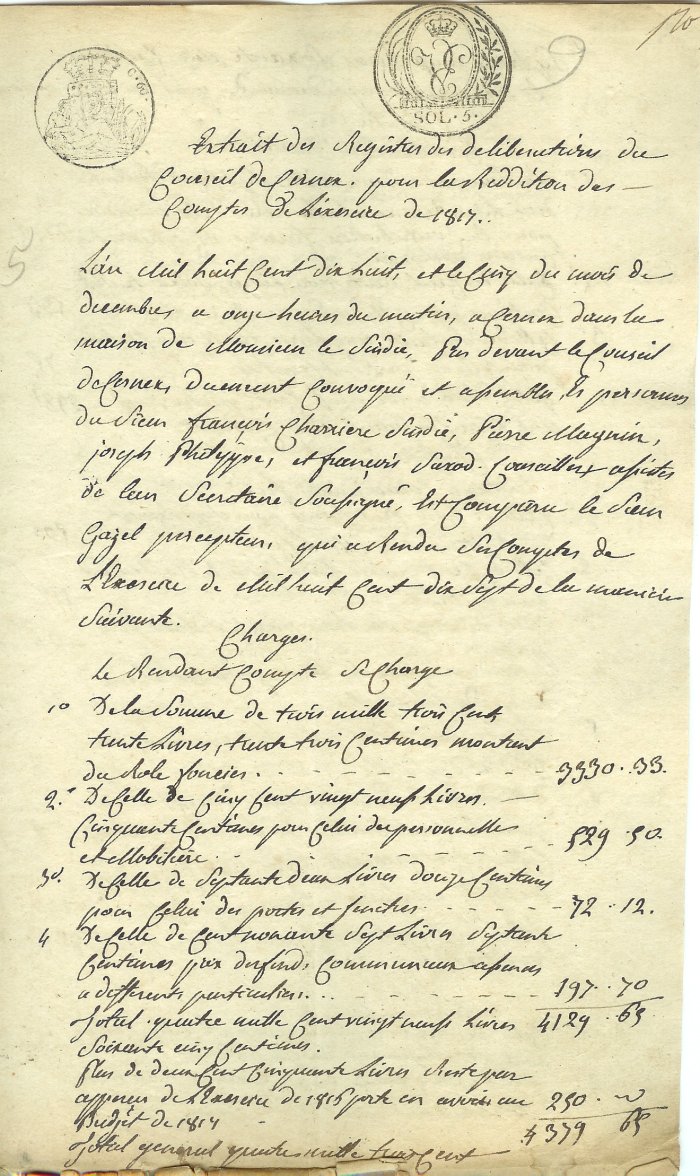 120
C. 60.
SOL. 5.
Extrait des Registres des deliberations du
Conseil de Cernex. pour la Reddition des
Comptes de L'exercice de 1817.
5
L'an Mil huit Cent dix huit, et le Cinq du mois de
decembre, a onze heures du matin, a Cernex dans la
maison de Monsieur le Sindic, Par devant le Conseil
de Cernex, duement Convoqué et assemblés, Es personnes
du Sieur françois Charriere Sindic, Pierre Magnin,
joseph Philippe, et françois Saxod. Conseillers assistés
de leur Secretaire Soussigné, Est Comparu le Sieur
Gazel percepteur, qui a Rendu Ses Comptes de
L'Exercice de Mil huit Cent dix Sept de la maniere
Suivante.
Charges.
le Rendant Compte Se Charge
1° De la Somme de trois mille trois Cent
trente Livres, trente trois Centimes montant
du Role foncier. 3330. 33.
2.° De Celle de Cinq Cent vingt neuf Livres.
Cinquante Centimes pour Celui du personnelle
et Mobiliere. 529. 50.
3°. De Celle de Septante deux Livres douze Centimes
pour Celui des portes et fenetres 72. 12.
4 De Celle de Cent nonante Sept Livres Septante
Centimes prix des fonds Communaux
a differents particuliers. 197. 70
Total. quatre mille Cent vingt neuf Livres 4129. 65
Soixante cinq Centimes.
Plus de deux Cent Cinquante Livres Reste par
de L'Exercice de 1816 porté en au 250.
Budjèt de 1817 4379 65
Total general quatre mille trois Cent